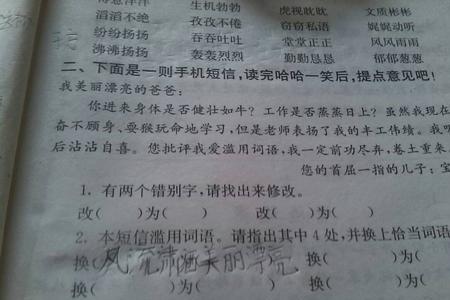 得意洋洋 生机勃勃 虎视眈眈 文质彬彬
滔滔不绝 孜孜不倦 窃窃私语 娓娓动听
纷纷扬扬 吞吞吐吐 堂堂正正 风风雨雨
沸沸扬扬 轰轰烈烈 勤勤恳恳 郁郁葱葱
二、下面是一则手机短信,读完哈哈一笑后,提点意见吧!
我美丽漂亮的爸爸:
你进来身体是否健壮如牛?工作是否蒸蒸日上?虽然我现在
奋不顾身、耍猴玩命地学习,但是老师表扬了我的丰工伟绩。我
后沾沾自喜。您批评我爱滥用词语,我一定前功尽弃,卷土重来
您的首屈一指的儿子:宝
1. 有两个错别字,请找出来修改。
改( )为( ) 改( )为( )
2. 本短信滥用词语。请指出其中4处,并换上恰当词语
换(风流潇洒美丽漂亮 换(
换( )为( ) 换(